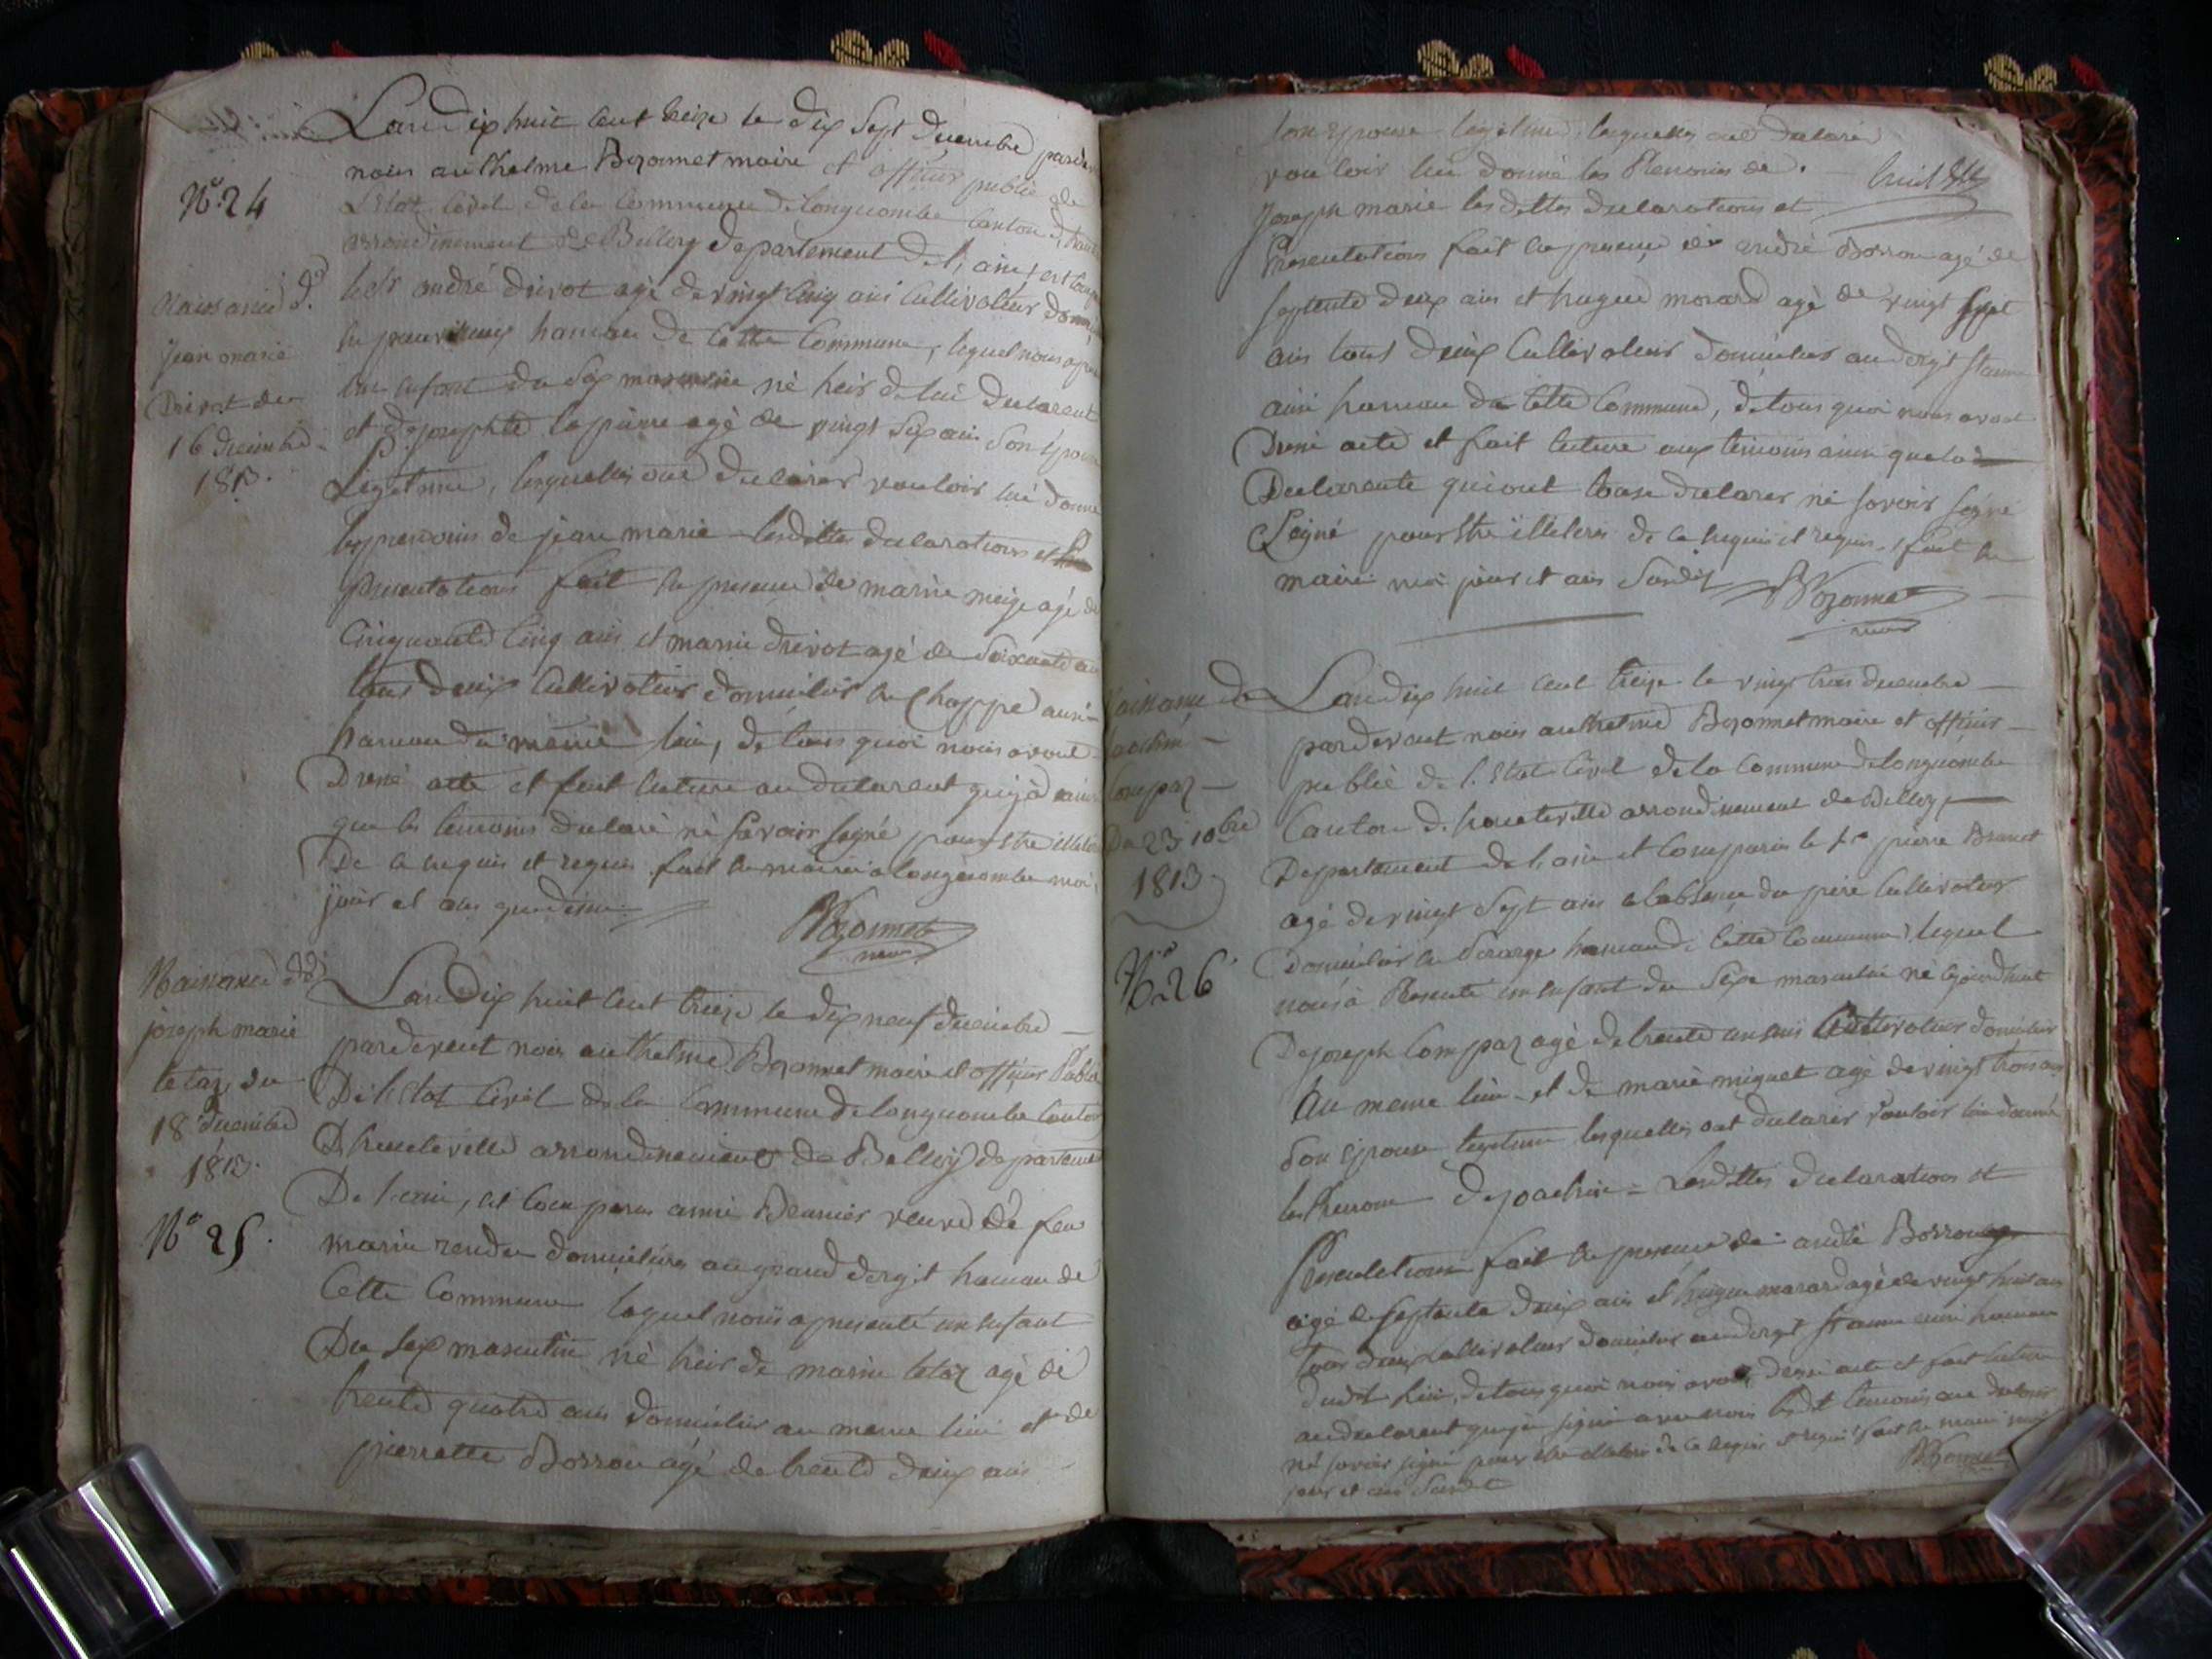 L'an dix huit cent treize le dix sept décembre pardev
nous authelme Bozonnet maire et officier public de
L'Etat Civil de la Commune de longecombe Canton d'haut
arrondinement de Belley departement de l'ain, est comp
le sr andré drivot agé de vingt cinq ans Cultivateur domi
hameau de Cette Commune, lequel nous a pr
un enfant du Sex masculin né heir de lui declarent
et de josephte lapierre agé de vingt Six ans Son Epouse
Legitime, lesquelles ont declarer vouloir lui donné
les prenoms de jean marie lesdittes declarations et
presentations fait en presence de marin meige agé de
Cinquante Cinq ans et marin drivot agé de Soixante an
tous deux Cultivateurs domicilies en Chappe aussi
hameau du même lieu, de tous quoi nous avons
Dresé acte et fait lecture au declarent qui a ainsi
que les temoins declaré né Savoir signé pour etre illeteré
De ce requis et requis fait en mairie a longecombe mois
jour et ans que dessus
Bozonnet
maire
N° 24
Naissance d.
jean marie
Drivot du
16 decembre
1813.
L'an Dix huit Cent treize le dix neuf decembre
pardevent nous authelme Bozonnet maire et officier Public
De l'Etat Civil de la Commune de longecombe Canton
D'hauteville arrondinement de Belley departement
De l'ain, est Comparus anne Beanier veuve de feu
marin rendu domicilié au grand dergit hameau de
Cette Commune laquel nous a presenté un enfant
Du Sex masculin né heir de marin letaz agé de
trente quatre ans domicilier au meme lieu et de
pierrette Borron agé de trente deux ans
Naissance de
joseph marie
letaz du
18 decembre
1813.
N° 25.
Son Epouse legitime lesquelles ont declaré
vouloir lui donné les Prenoms de.
joseph marie les dittes declarations et
Presentations fait en presence de andré Borron agé de
septente deux ans et hugue morard agé de vingt sept
ans tous deux Cultivateurs domicilies au dergit
aussi hameau de Cette Commune, de tous quoi nous avont
Dresé acte et fait lecture aux temoins ainsi que la
Declarente qui ont tous declarer né savoir signé
Signé pour etre illeteré de ce requis et requis, fait en
mairie moi jour et ans Susdit
Bozonnet
maire
L'an dix huit cent treize le vingt trois decembre
pardevent nous authelme Bozonnet maire et officier
public de l'Etat Civil de la Commune de longecombe
Canton d'hauteville arrondinement de Belley
Departement de l'ain et Comparus le sr pierre Brunet
agé de vingt Sept ans a l'absence du père Cultivateur
Domicilier en hameau de Cette Commune, lequel
nous a Presenté un enfant du Sexe masculin né aujourdhuit
De joseph Compaz agé de trente un ans Cultivateur domicilier
Au meme lieu et de marie miguet agé de vingt trois ans
Son Epouse legitime lesquelles ont declarer vouloir lui donné
les Prenoms de joachim Lesdittes declarations et
Presentations fait en presence de andré Borron
agé de septente deux ans et hugue morard agé de vingt huit ans
tous deux Cultivateurs domicilies au dergit hameau
dudit lieu, de tous quoi nous avons dressé acte et fait lecture
au declarent qui a signé avec nous lesdit temoins ont declaré
né savoir signé pour etre illeteré de ce requis et requis fait en mairie moi
jour et ans Susdit
Bozonnet
Naissance de
joachim
Compaz
Du 23 10bre
1813
N° 26